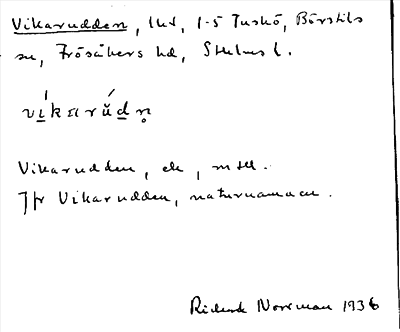 Vikarudden, lht, 1-5 Tuskö, Börstils
sn, Frösåkers hd, Sthlms l.
vi̱karŭd̲n̥
Vikarudden, ek, mtbl.
Jfr Vikarudden, naturnamnen.
Rickard Norrman 1936